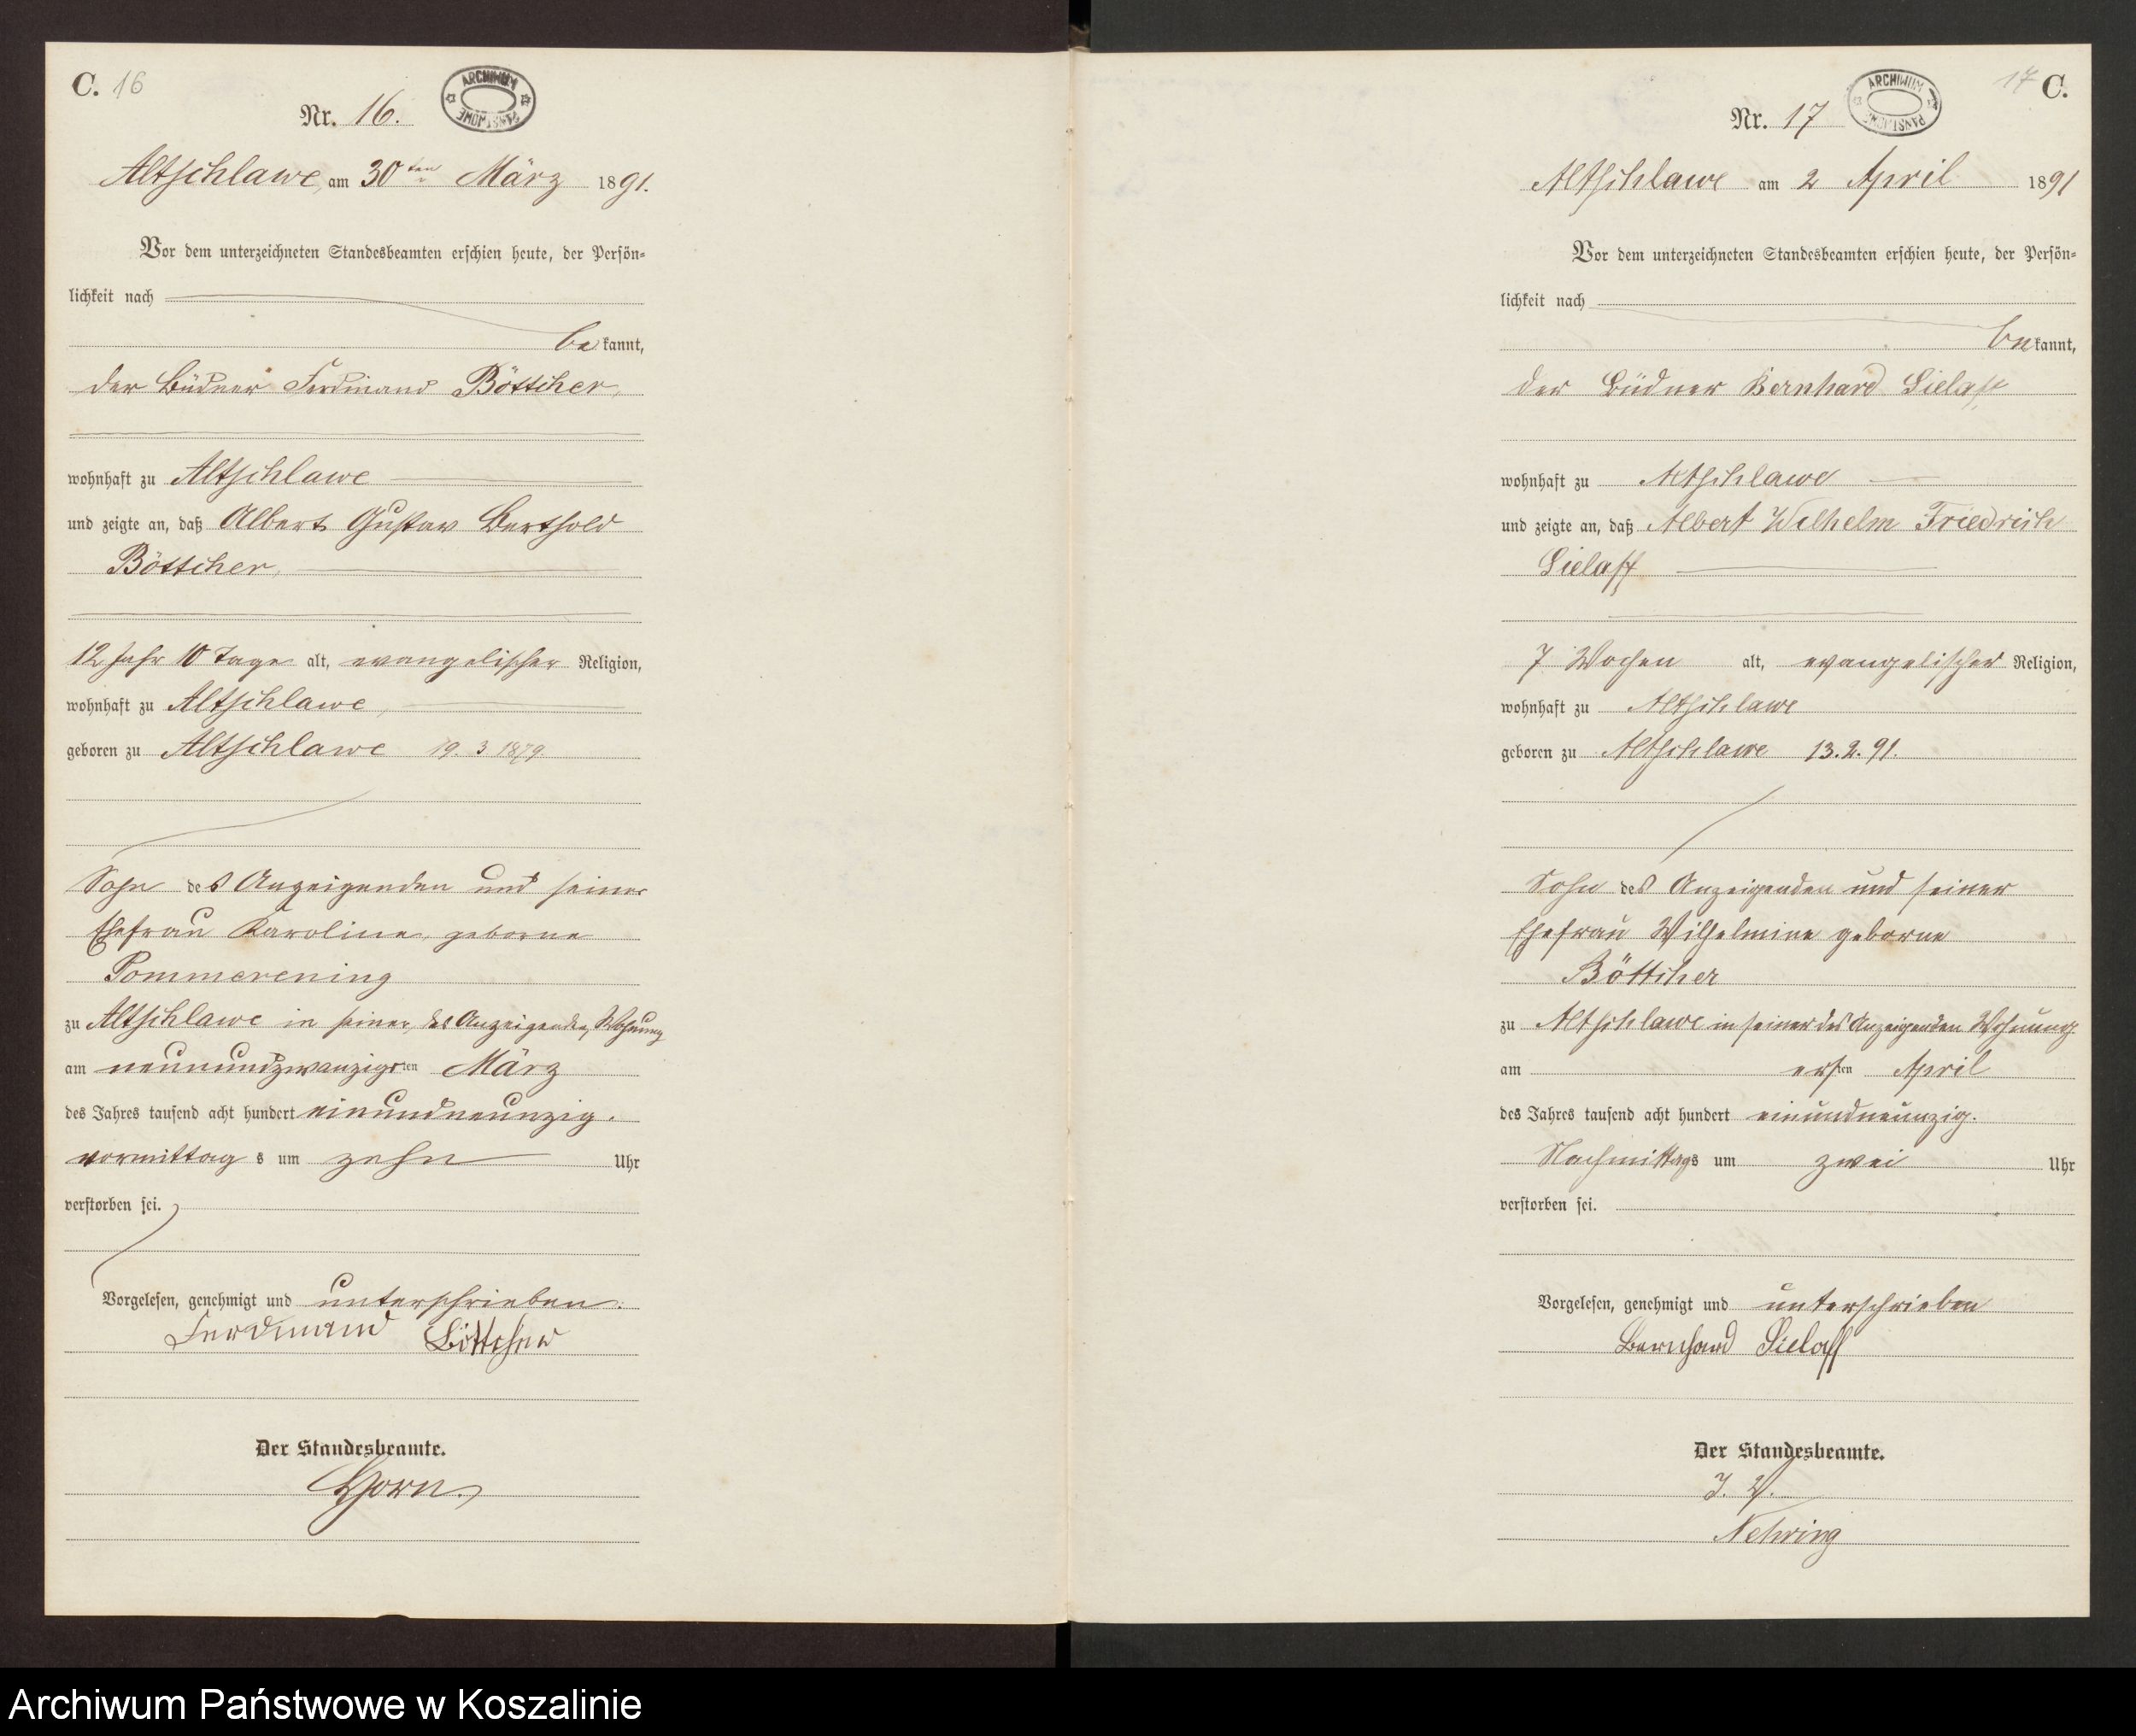 C. 16
Nr. 16.
ARCHIWUM PAŃSTWOWE
Altschlawe, am 30ten März 1891.
Vor dem unterzeichneten Standesbeamten erschien heute, der Persön-
lichkeit nach
be kannt,
der Büdner Ferdinand Böttcher,
wohnhaft zu Altschlawe
und zeigte an, daß Albert Gustav Berthold
Böttcher,
12 Jahr 10 Tage alt, evangelischer Religion,
wohnhaft zu Altschlawe,
geboren zu Altschlawe 19. 3 1879
Sohn des Anzeigenden und seiner
Ehefrau Karoline, geborne
Pommerening
zu Altschlawe in seiner, des Anzeigenden, Wohnung
am neunundzwanzigsten März
des Jahres tausend acht hundert einundneunzig.
vormittag s um zehn Uhr
verstorben sei.
Vorgelesen, genehmigt und unterschrieben.
Ferdinand Böttcher
Der Standesbeamte.
17 C.
Nr. 17
ARCHIWUM PAŃSTWOWE
Altschlawe am 2 April 1891
Vor dem unterzeichneten Standesbeamten erschien heute, der Persön-
lichkeit nach
be kannt,
der Büdner Bernhard Sielaff
wohnhaft zu Altschlawe
und zeigte an, daß Albert Wilhelm Friedrich
Sielaff
7 Wochen alt, evangelischer Religion,
wohnhaft zu Altschlawe
geboren zu Altschlawe 13. 2. 91.
Sohn des Anzeigenden und seiner
Ehefrau Wilhelmine geborne
Böttcher
zu Altschlawe in seiner des Anzeigenden Wohnung.
am ersten April
des Jahres tausend acht hundert einundneunzig.
Nachmittags um zwei Uhr
verstorben sei.
Vorgelesen, genehmigt und unterschrieben
Bernhard Sielaff
Der Standesbeamte.
J. V.
Nehring
Archiwum Państwowe w Koszalinie